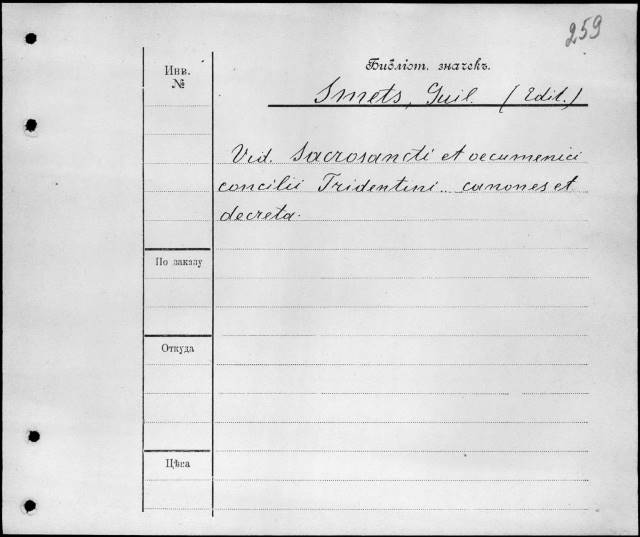 259
Библіот. значекъ.
Инв.
№
Smets, Guil. (Edit.)
Vid. Sacrosancti et oecumenici
concilii Tridentini... canones et
decreta.
По заказу
Откуда
Цѣна